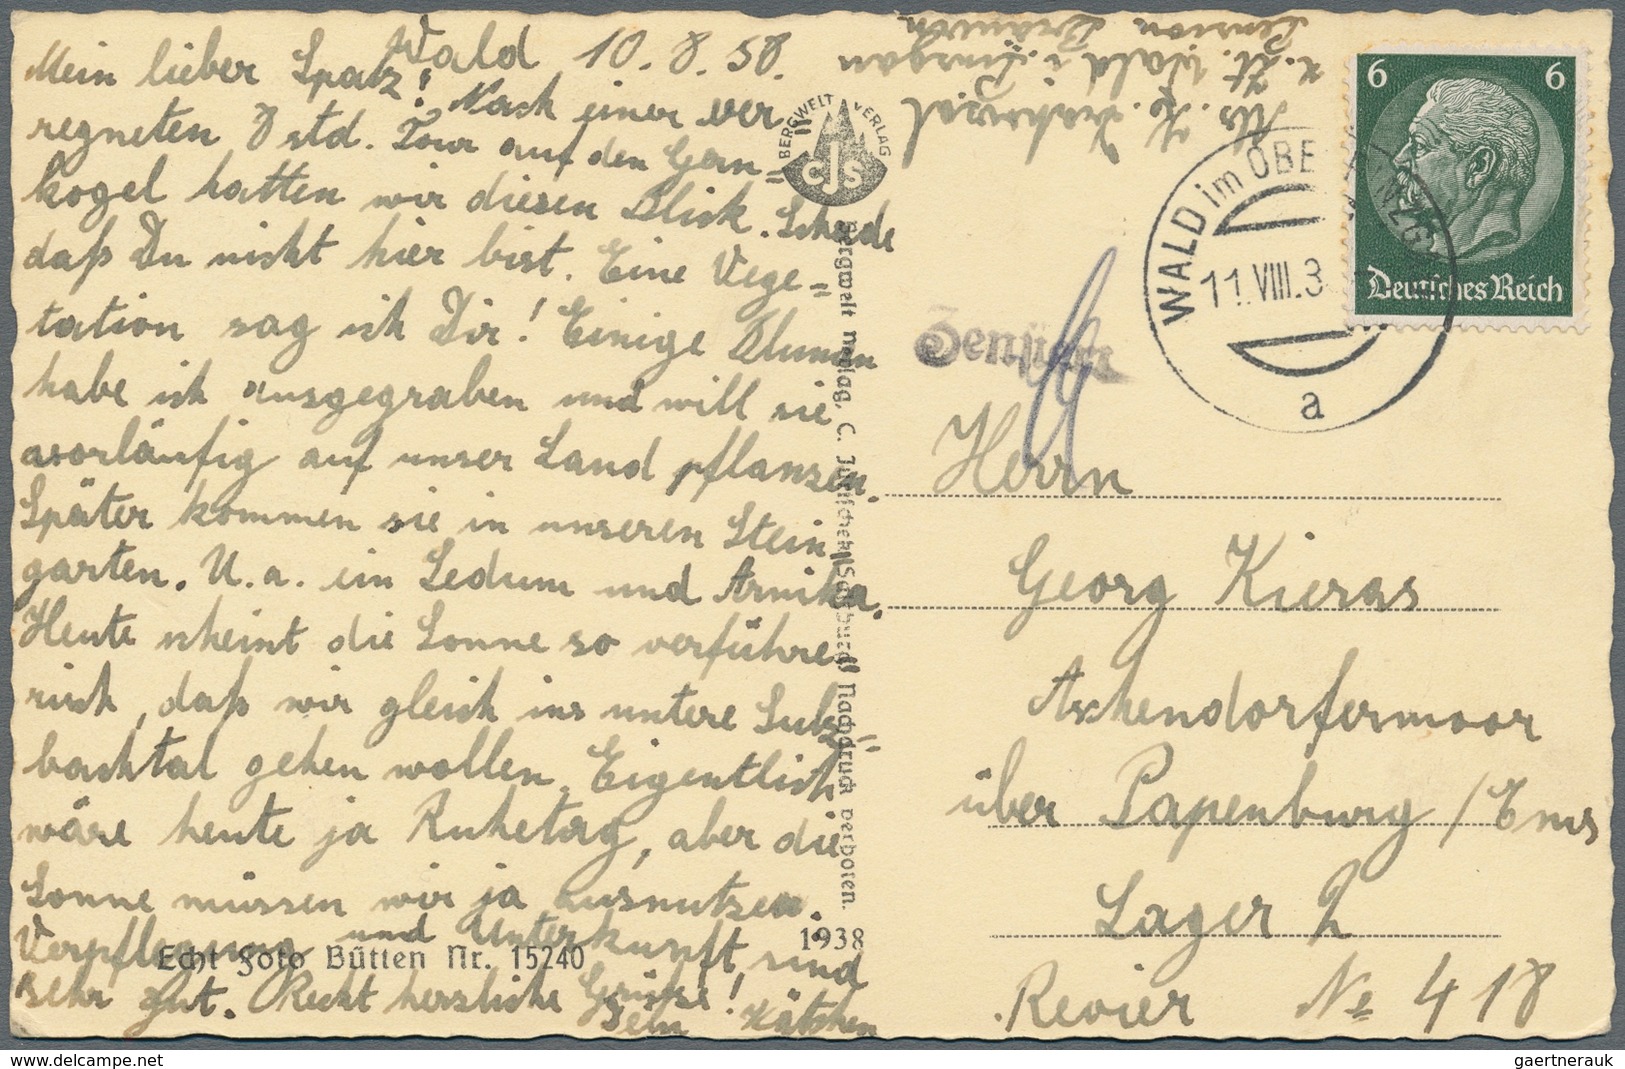 Wald 10.8.38.
Mein lieber Spatz! Nach einer ver
regneten 8 std. Tour auf den Gern=
kogel hatten wir diesen Blick. Schade
daß Du nicht hier bist. Eine Vege=
tation sag ich Dir! Einige Blumen
habe ich ausgegraben und will sie
vorläufig auf unser Land pflanzen.
Später kommen sie in unseren Stein
garten. U.a. ein Sedum und Arnika.
Heute scheint die Sonne so verführe
risch, daß wir gleich ins untere Sulz=
bachtal gehen wollen. Eigentlich
wäre heute ja Ruhetag, aber die
Sonne müssen wir ja ausnutzen.
Verpflegung und Unterkunft sind
sehr gut. Recht herzliche Grüße!
Dein Kätchen
Echt Foto Bütten Nr. 15240
1938
BERGWELT VERLAG
CJS
Bergwelt Verlag, C. Jurischek, Salzburg, Nachdruck verboten.
Abs. K.
z. Zt. Wald i. Pinzgau
Pension
WALD im OBERPINZGAU
11.VIII.3
a
6 6
Deutsches Reich
Zensiert
Herrn
Georg Kieras
Aschendorfermoor
über Papenburg/Ems
Lager 2
Revier № 418
gaertnerauk